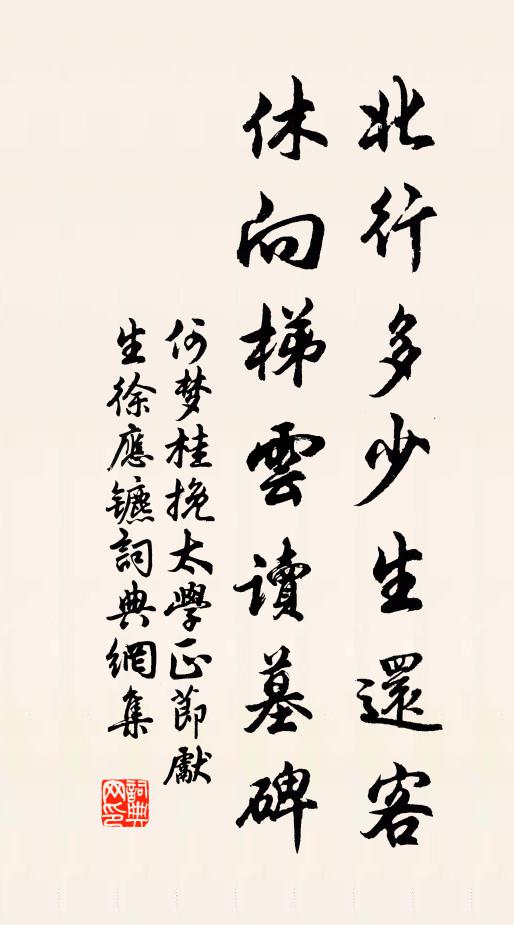 北行多少生還客
休向梯雲讀墓碑
何梦桂挽太學正節獻
生徐應鑣詞典網集
詞典
网印